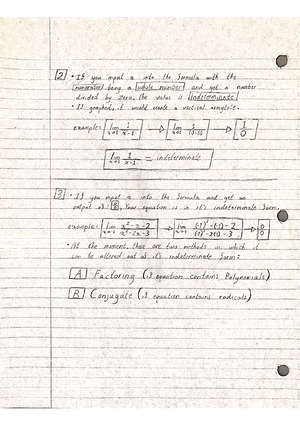 2 • If you input x into the formula with the
numerator being a whole number and get a number
divided by zero, the value is indeterminate
• If graphed, it would create a vertical asymptote.
example: lim x→1 1/x-1 → lim x→1 1/(1)-1 → 1/0
lim x→1 1/x-1 = indeterminate
3 • If you input x into the formula and get an
output of 0/0, your equation is in it's indeterminate form.
example: lim x→-1 x²-x-2/x²-2x-3 → lim x→-1 (-1)²-(-1)-2/(-1)²-2(-1)-3 → 0/0
• At the moment, there are two methods in which it
can be altered out of it's indeterminate form:
A Factoring (if equation contains Polynomials)
B Conjugate (if equation contains radicals)